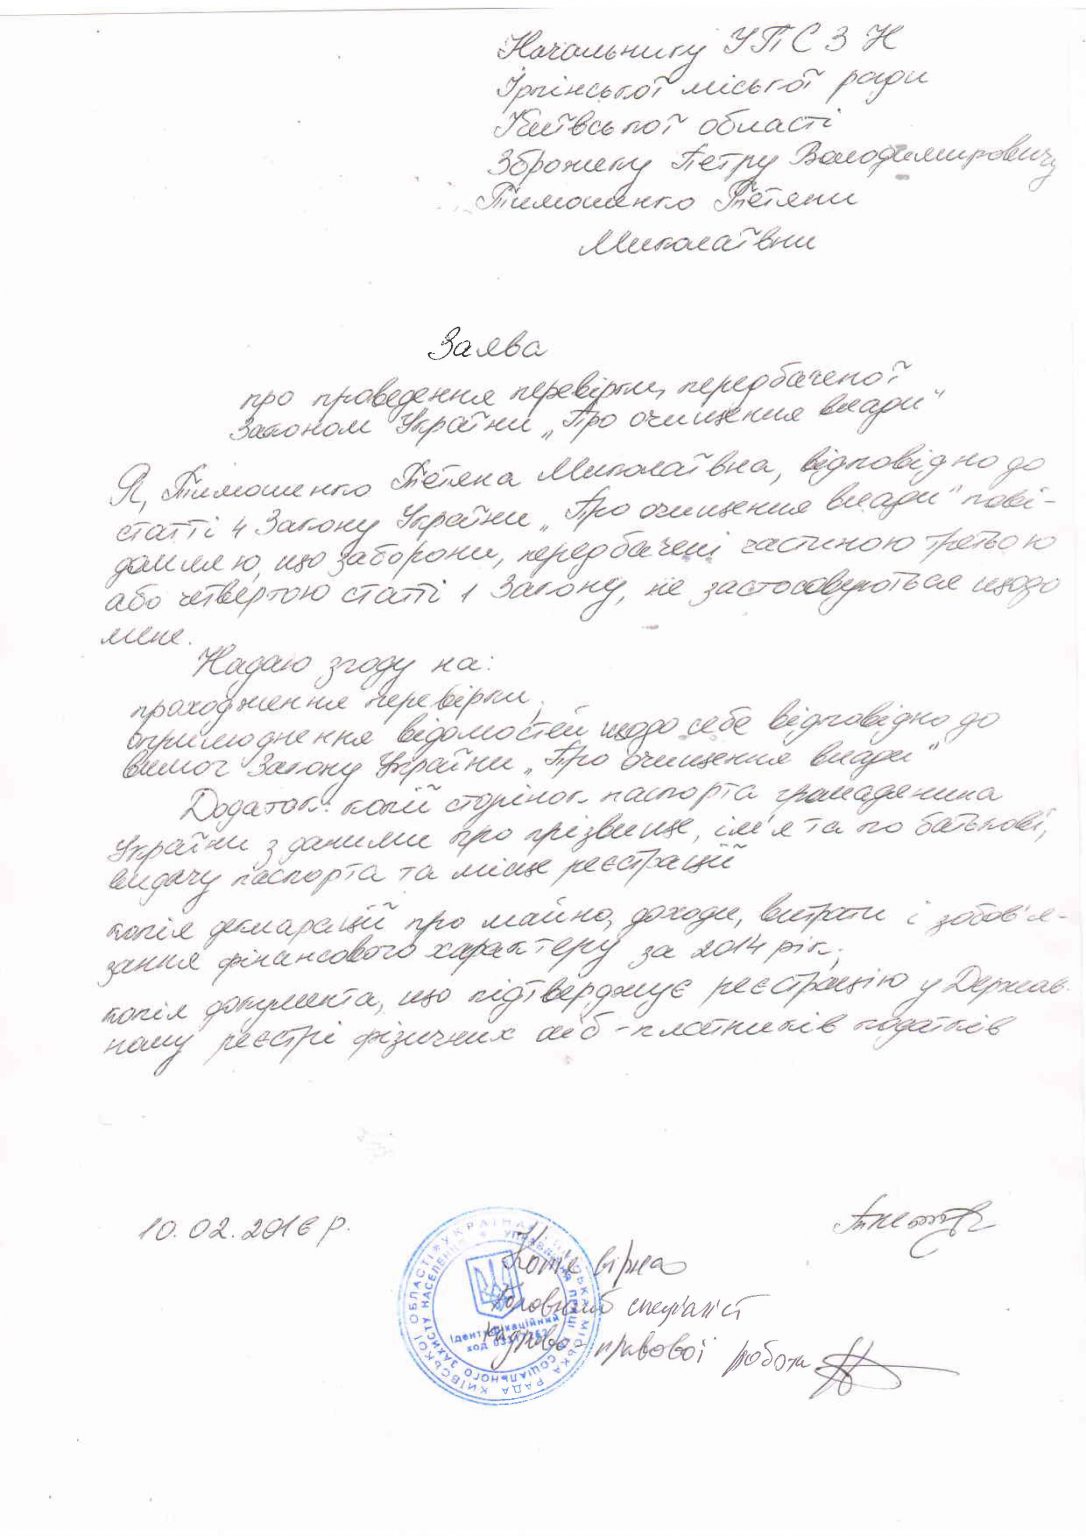 Начальнику УПСЗН
Ірпінської міської ради
Київської області
Зброжеку Петру Володимировичу
Тимошенко Тетяни
Миколаївни
Заява
про проведення перевірки, передбаченої
Законом України „Про очищення влади"
Я, Тимошенко Тетяна Миколаївна, відповідно до
статті 4 Закону України „Про очищення влади" пові-
домляю, що заборони, передбачені частиною третьою
або четвертою статті 1 Закону, не застосовуються щодо
мене.
Надаю згоду на:
проходження перевірки;
оприлюднення відомостей щодо себе відповідно до
вимог Закону України „Про очищення влади"
Додаток: копії сторінок паспорта громадянина
України з даними про прізвище, ім'я та по батькові,
видачу паспорта та місце реєстрації
копія декларації про майно, доходи, витрати і зобов'я-
зання фінансового характеру за 2014 рік;
копія документа, що підтверджує реєстрацію у Держав-
ному реєстрі фізичних осіб - платників податків
10.02.2016 р.
Копія вірна
Головний спеціаліст
кадрово-правової роботи
УКРАЇНА ІРПІНСЬКА МІСЬКА РАДА КИЇВСЬКОЇ ОБЛАСТІ
УПРАВЛІННЯ ПРАЦІ ТА СОЦІАЛЬНОГО ЗАХИСТУ НАСЕЛЕННЯ
Ідентифікаційний
код